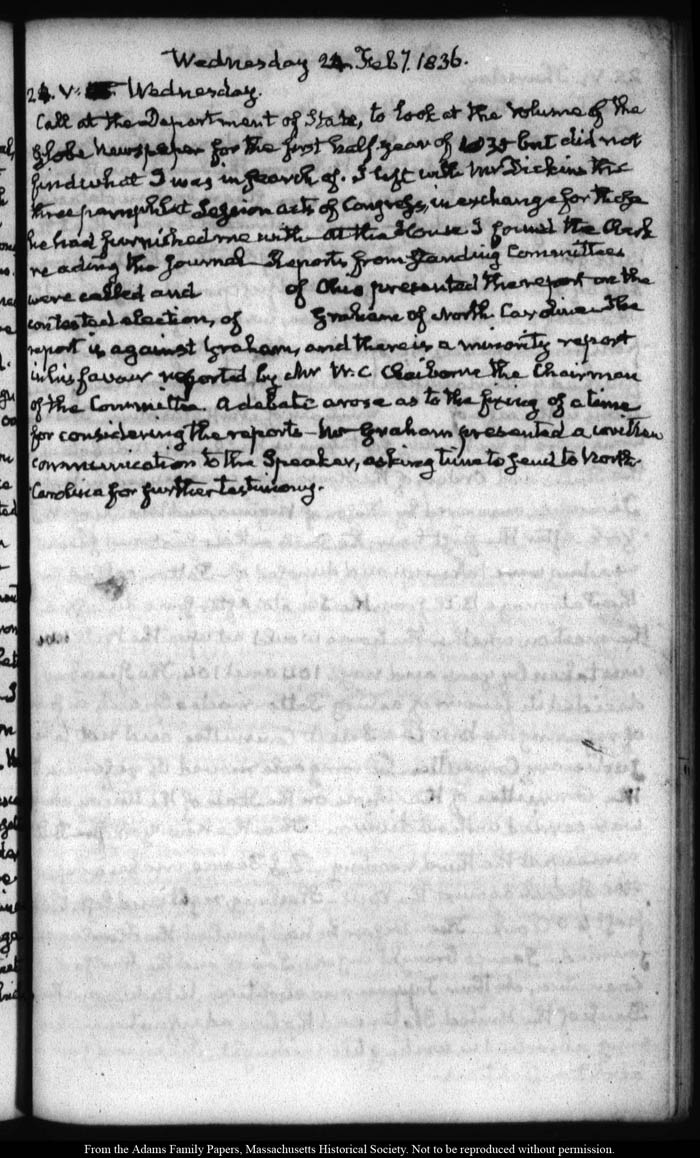 Wednesday 24 Feby. 1836.
24. V. Wednesday.
Call at the Department of State, to look at the volume of the
Globe Newspaper for the first half-year of 1835 but did not
find what I was in search of. I left with Mr Dickins the
three pamphlet Session acts of Congress, in exchange for those
he had furnished me with at the House I found the Clerk
reading the Journal Reports from Standing Committees
were called and of Ohio presented the report on the
contested election, of Graham of North Carolina The
report is against Graham, and there is a minority report
in his favour reported by Mr W. C Claiborne the Chairman
of the Committee. A debate arose as to the fixing of a time
for considering the reports Mr Graham presented a written
communication to the Speaker, asking time to send to North-
Carolina for further testimony.
From the Adams Family Papers, Massachusetts Historical Society. Not to be reproduced without permission.